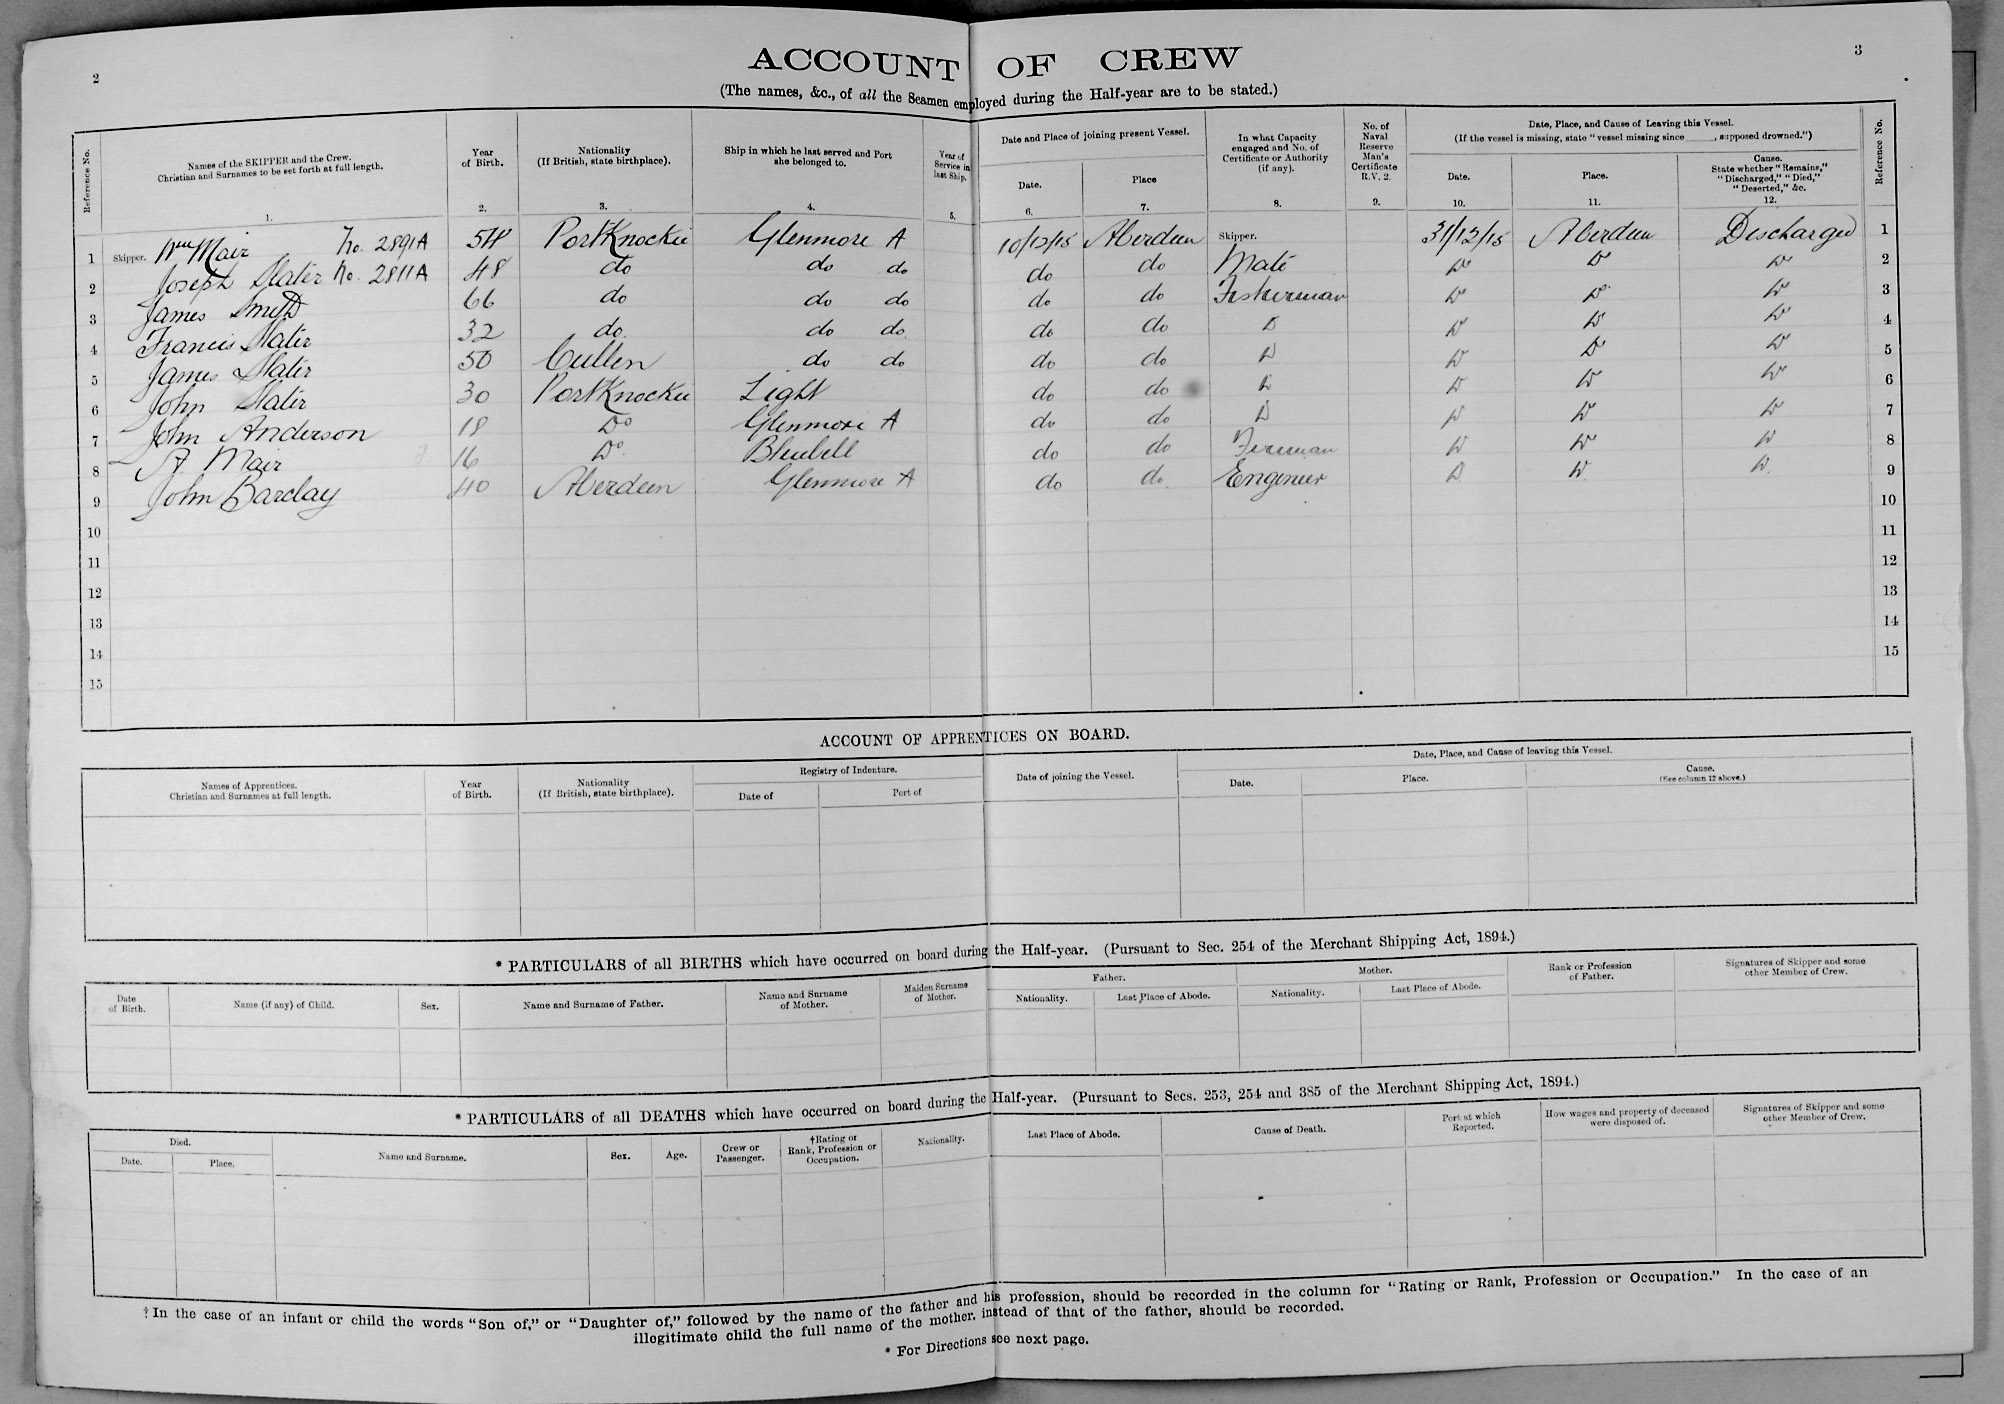 2
3
ACCOUNT OF CREW
(The names, &c., of all the Seamen employed during the Half-year are to be stated.)
Reference No.
Names of the SKIPPER and the Crew.
Christian and Surnames to be set forth at full length.
1.
Year of Birth.
2.
Nationality
(If British, state birthplace).
3.
Ship in which he last served and Port she belonged to.
4.
Year of Service in last Ship.
5.
Date and Place of joining present Vessel.
Date.
6.
Place
7.
In what Capacity engaged and No. of Certificate or Authority (if any).
8.
No. of Naval Reserve Man's Certificate R.V. 2.
9.
Date, Place, and Cause of Leaving this Vessel.
(If the vessel is missing, state "vessel missing since ____, supposed drowned.")
Date.
10.
Place.
11.
Cause.
State whether "Remains," "Discharged," "Died," "Deserted," &c.
12.
Reference No.
1 Skipper. Wm Mair No. 2891A 54 PortKnockie Glenmore A 10/12/15 Aberdeen Skipper. 31/12/15 Aberdeen Discharged 1
2 Joseph Slater No. 2811A 48 do do do do do Mate Do Do Do 2
3 James Smith 66 do do do do do Fisherman Do Do Do 3
4 Francis Slater 32 do do do do do D Do Do Do 4
5 James Slater 50 Cullen do do do do D Do Do Do 5
6 John Slater 30 PortKnockie Light do do D Do Do Do 6
7 John Anderson 18 Do Glenmore A do do D Do Do Do 7
8 A Mair 16 Do Bluebell do do Fireman Do Do Do 8
9 John Barclay 40 Aberdeen Glenmore A do do Engineer D Do Do 9
10 10
11 11
12 12
13 13
14 14
15 15
ACCOUNT OF APPRENTICES ON BOARD.
Names of Apprentices.
Christian and Surnames at full length.
Year of Birth.
Nationality
(If British, state birthplace).
Registry of Indenture.
Date of
Port of
Date of joining the Vessel.
Date, Place, and Cause of leaving this Vessel.
Date.
Place.
Cause.
(See column 12 above.)
* PARTICULARS of all BIRTHS which have occurred on board during the Half-year. (Pursuant to Sec. 254 of the Merchant Shipping Act, 1894.)
Date of Birth.
Name (if any) of Child.
Sex.
Name and Surname of Father.
Name and Surname of Mother.
Maiden Surname of Mother.
Father.
Nationality.
Last Place of Abode.
Mother.
Nationality.
Last Place of Abode.
Rank or Profession of Father.
Signatures of Skipper and some other Member of Crew.
* PARTICULARS of all DEATHS which have occurred on board during the Half-year. (Pursuant to Secs. 253, 254 and 385 of the Merchant Shipping Act, 1894.)
Died.
Date.
Place.
Name and Surname.
Sex.
Age.
Crew or Passenger.
†Rating or Rank, Profession or Occupation.
Nationality.
Last Place of Abode.
Cause of Death.
Port at which Reported.
How wages and property of deceased were disposed of.
Signatures of Skipper and some other Member of Crew.
†In the case of an infant or child the words "Son of," or "Daughter of," followed by the name of the father and his profession, should be recorded in the column for "Rating or Rank, Profession or Occupation." In the case of an
illegitimate child the full name of the mother, instead of that of the father, should be recorded.
* For Directions see next page.